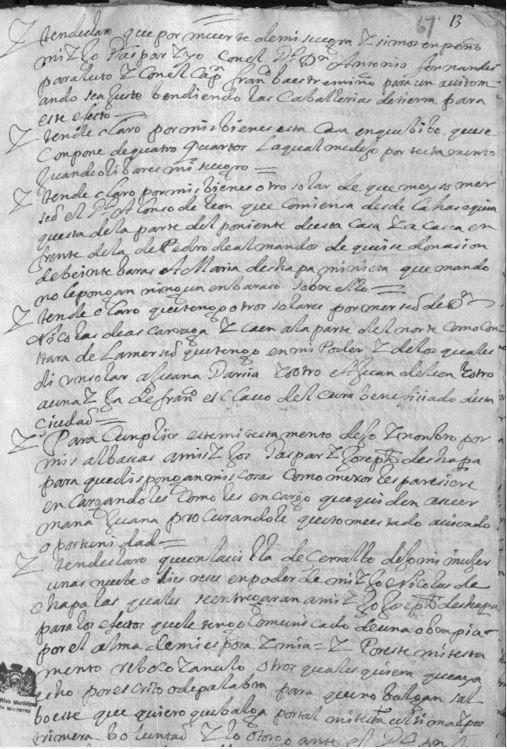 67 13
Yten declaro que por muerte de mi suegra
mi Yjo Gaspar Yzo con el Antonio fernandes
para luto Y con el Cap.n fran.co baes treminio para un
ando se ajuste bendiendo las Caballerias de tierra para
este efecto
Yten declaro por mis bienes esta Casa en que bibo, que se
Conpone de quatro quartos La qual me dejo por testamento
Juan de olibares mi suegro
Yten declaro por mis bienes otro solar de que me yso mer
sed el Alonso de leon que Comiensa desde la hasequia
questa de la parte del poniente desta Casa Y la Casa en
frente de la de Pedro de almandos de quise donasion
de beinte baras A Maria de chapa mi nieta que mando
no le pongan ningun enbaraso sobre ello
Yten declaro que tengo otros solares por mersed de
Nicolas de ascarraga Y Caen a la parte del norte Como Con
stara de La mersed que tengo en mi Poder Y de los quales
di un solar a Juana Y otro A Juan de leon Y otro
a una Yja de fran.co el Clauo del Cura beneficiado desta
ciudad
Y Para Cunplir este mi testamento dejo Y nonbro por
mis albaseas a mis Yjos Gaspar Y Joseph de chapa
para que dispongan mis cosas Como mexor les paresiere
en Cargandoles Como les encargo que quiden a su er
mana Juana procurandole questo me estado auiendo
oportunidad
Yten declaro que en la uilla de Cerralbo dejo mi muger
unas nuebe o dies reses en poder de mi Yjo Nicolas de
chapa las quales se entregaran a mi Yjo Joseph de chapa
para los efectos que le tengo Comunicado de una obra pia
por el alma de mi esposa Y mia = Y Por este mi testa
mento reboco Y anulo otros quales quiera que aya
echo por escrito o de palabra para que no balgan sal
bo este que quiero que balga por tal mi testa
primera boluntad Y lo otorgo ante el